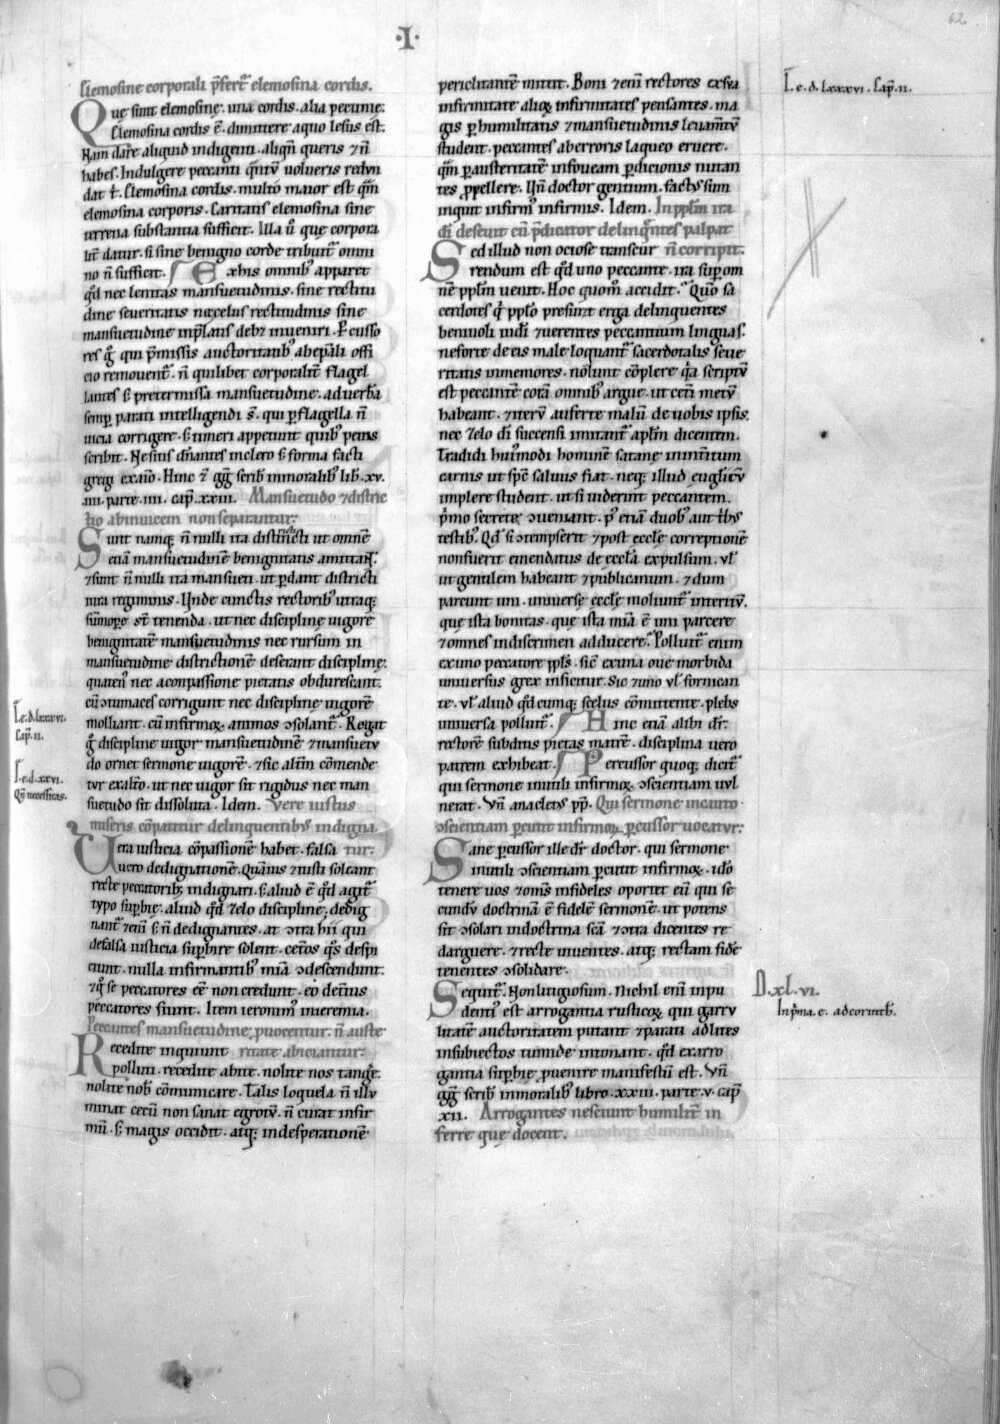 ·I·
Elemosine corporali p̄fert᷑ elemosina cordis.
Que sunt elemosine. una cordis. alia pecunie.
Elemosina cordis ē. dimittere a quo lesus est.
Nam dare aliquid indigenti. aliqn̄ queris ⁊ n̄
habes. Indulgere peccanti quantū uolueris redun
dat t̄. Elemosina cordis. multo maior est qm̄
elemosina corporis. Caritatis elemosina sine
terrena substantia sufficit. Illa ū que corpora
lit̄ datur. si sine benigno corde tribuit᷑ omni
no n̄ sufficit. Ex his omnib; apparet
qd̄ nec lenitas mansuetudinis. sine rectitu
dine seueritatis nec zelus rectitudinis sine
mansuetudine in p̄latis debz inueniri. Pcusso
res g̊ qui p̄missis auctoritatib; ab ep̄ali offi
cio remouent᷑. n̄ quilibet corporalit̄ flagel
lantes s; pretermissa mansuetudine. ad uerb̄a
semꝑ parati intelligendi s̄. qui ꝑ flagella n̄
uicia corrigere. s; timeri appetunt quib; petrus
scribit. Ne sitis dn̄antes in clero s; forma facti
gregi ex aīo. Hinc ⁊ gg̅ scrib̄ in moralib; lib̄. xv.
.iiii. parte .iii. cap̄. xxiii. Mansuetudo ⁊ distric
tio ab inuicem non separantur:
Sunt namq; n̄nulli ita districti ut omnē
etiā mansuetudinē benignitatis amittāt.
⁊ sunt n̄nulli ita mansueti. ut ꝑdant districti
iura regiminis. Unde cunctis rectorib; utraq;
sūmoꝑe st̄ tenenda. ut nec discipline uigore
benignitatē mansuetudinis nec rursum in
mansuetudine districtionē deserant discipline.
quaten; nec a conpassione pietatis obdurescant.
cū ɔtumaces corrigunt nec discipline uigorē
molliant. cū infirmoꝝ animos ɔsolant᷑. Regat
g̊ discipline uigor mansuetudinē ⁊ mansuetu
do ornet sermone uigorē. ⁊ sic altm̄ cōmende
tur ex alt̄o. ut nec uigor sit rigidus nec man
suetudo sit dissoluta. Idem. Vere iustus
miseris cōpatitur delinquentib; indigna
Uera iusticia cōpassionē habet. falsa tur:
uero dedignationē. Quāuis ⁊ iusti soleant
recte peccatorib; indignari. s; aliud ē qd̄ agit᷑
typo supbię. aliud qd̄ zelo discipline. dedig
nant᷑ ⁊eni s; n̄ dedignantes. at ɔtra hii qui
de falsa iusticia supbire solent. cet̄os q̊s despi
ciunt. nulla infirmantib; mīa ɔdescendunt:
⁊ q̊ se peccatores eē non credunt. eo det̄ius
peccatores fiunt. Item ieronim; in ieremia.
Peccantes mansuetudine ꝓuocentur. n̄ auste
Recedite inquiunt ritate abiciantur:
polluti. recedite abite. nolite nos tang̊e.
nolite nob̄ cōmunicare. Talis loquela n̄ illu
minat cecū non sanat egrotū. n̄ curat infir
mū. s; magis occidit. atq; in desperationē
periclitantē mittit. Boni ⁊eni rectores ex sua
infirmitate alioꝝ infirmitates pensantes. ma
gis ꝑ humilitatis ⁊ mansuetudinis leuam̄tū
student. peccantes ab erroris laqueo eruere.
qm̄ ꝑ austeritatē in foueam ꝑdicionis nutan
tes ꝓpellere. Un̄ doctor gentium. factus sum
inquit infirm; infirmis. Idem. In ppl̄m ira
di deseuit cū p̄dicator delinq̄ntes palpat
Sed illud non ociose transetur n̄ corripit:
rendum est qd̄ uno peccante. ira sup om
nē ppl̄m uenit. Hoc quom̊ accidit. Quō sa
cerdotes q̇ ppl̄o presunt erga delinquentes
beniuoli uidi ⁊ uerentes peccantium linguas.
ne forte de eis male loquant᷑ sacerdotalis seue
ritatis inmemores. nolunt cōplere q̇a scriptū
est peccantē corā omnib; argue. ut cet̄i metū
habeant. ⁊ iterū auferte malū de uobis ipsis.
nec zelo di succensi imitant᷑ apl̄m dicentem.
Tradidi hui;modi hominē satanę in int̄itum
carnis ut sp̄c saluus fiat. neq; illud euglicū
implere student. ut si uiderint peccantem.
ṗmo secrete ɔueniant. p; etiā duob; aut trib;
testib;. Qd̄ si ɔtempserit ⁊ post eccl̄e correptionē
non fuerit emendatus de eccl̄a expulsum. ut
ut gentilem habeant ⁊ publicanum. ⁊ dum
parcunt uni. uniuersę eccl̄e moliunt᷑ interitū.
que ista bonitas. que ista mīa ē uni parcere
⁊ omnes in discrimen adducere. Polluit᷑ enim
ex uno peccatore ppl̄s. sic ex una oue morbida
uniuersus grex inficitur. Sic ⁊ uno ut̄ fornican
te. ut̄ aliud qd̄cumq; scelus cōmittente. plebs
uniuersa polluit᷑. Hinc etiā alibi dr̄.
rectorē subditis pietas matrē. disciplina uero
patrem exhibeat. Percussor quoq; dicit᷑
qui sermone inutili infirmoꝝ ɔscientiam uul
nerat. Vn̄ anacletus pp̄. Qui sermone incauto
ɔscientiam ꝑcutit infirmoꝝ ꝑcussor uocatur:
Sane ꝑcussor ille dr̄ doctor. qui sermone
inutili ɔscientiam ꝑcutit infirmoꝝ. id̄o
tenere uos ⁊ om̄s infideles oportet eū qui se
cundū doctrinā ē fidelē sermonē. ut potens
sit ɔsolari in doctrina sc̄a ⁊ ɔtra dicentes re
darguere. ⁊ recte uiuentes. atq; rectam fidē
tenentes ɔsolidare.
Sequit᷑. Non litigiosum. Nichil enī inpu
denti; est arrogantia rusticoꝝ. qui garru
litatē auctoritatem putant ⁊ parati ad lites
in subiectos tumide intonant. qd̄ ex arro
gantia supbię ꝓuenire manifestū est. Vn̄
gg̅ scrib̄ in moralib; libro. xxiii. parte. v. cap̄
xii. Arrogantes nesciunt humilit̄ in
ferre que docent.
I. e. d. lxxxvi. Cap̄. ii.
I. e. d. lxxxvi.
Cap̄. ii.
I. e. d. xxvi.
Qn̄ necessitas.
D. xl. vi.
In p̄ma. e. ad corinth̄.
62